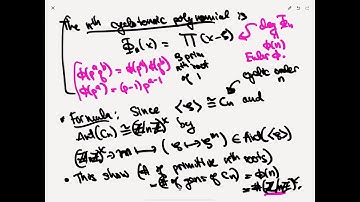 The nth cyclotomic polynomial is
Φₙ(x) = ∏ (x-ζ)
ζ prim
nth root
of 1
deg Φₙ
φ(n)
Euler φ.
φ(pᵃqᵇ) = φ(pᵃ)φ(qᵇ)
φ(pᵃ) = (p-1)pᵃ⁻¹
cyclic order
n
• Formula: Since <ζ> ≅ Cₙ and
Aut(Cₙ) ≅ (Z/nZ)ˣ by
(Z/nZ)ˣ ∋ m ↦ (ζ ↦ ζᵐ) ∈ Aut(<ζ>)
• This shows (# of primitive nth roots)
= (# of gens of Cₙ) = φ(n)
= #(Z/nZ)ˣ.